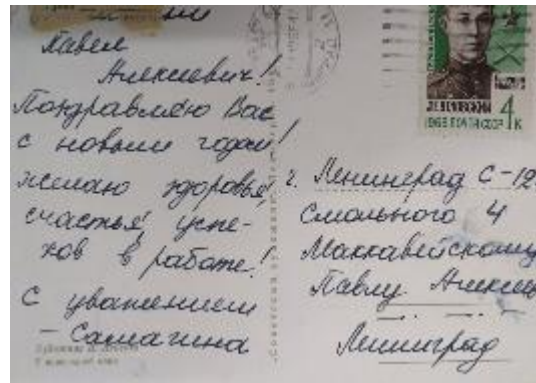 Павел
Алексеевич!
Поздравляю Вас
с новым годом!
желаю здоровья,
счастья, успе-
хов в работе!
С уважением
– Самагина
4 К
ПОЧТА СССР
г. Ленинград С-12
Смольного 4
Маккавейскому
Павлу Алексе
Ленинград